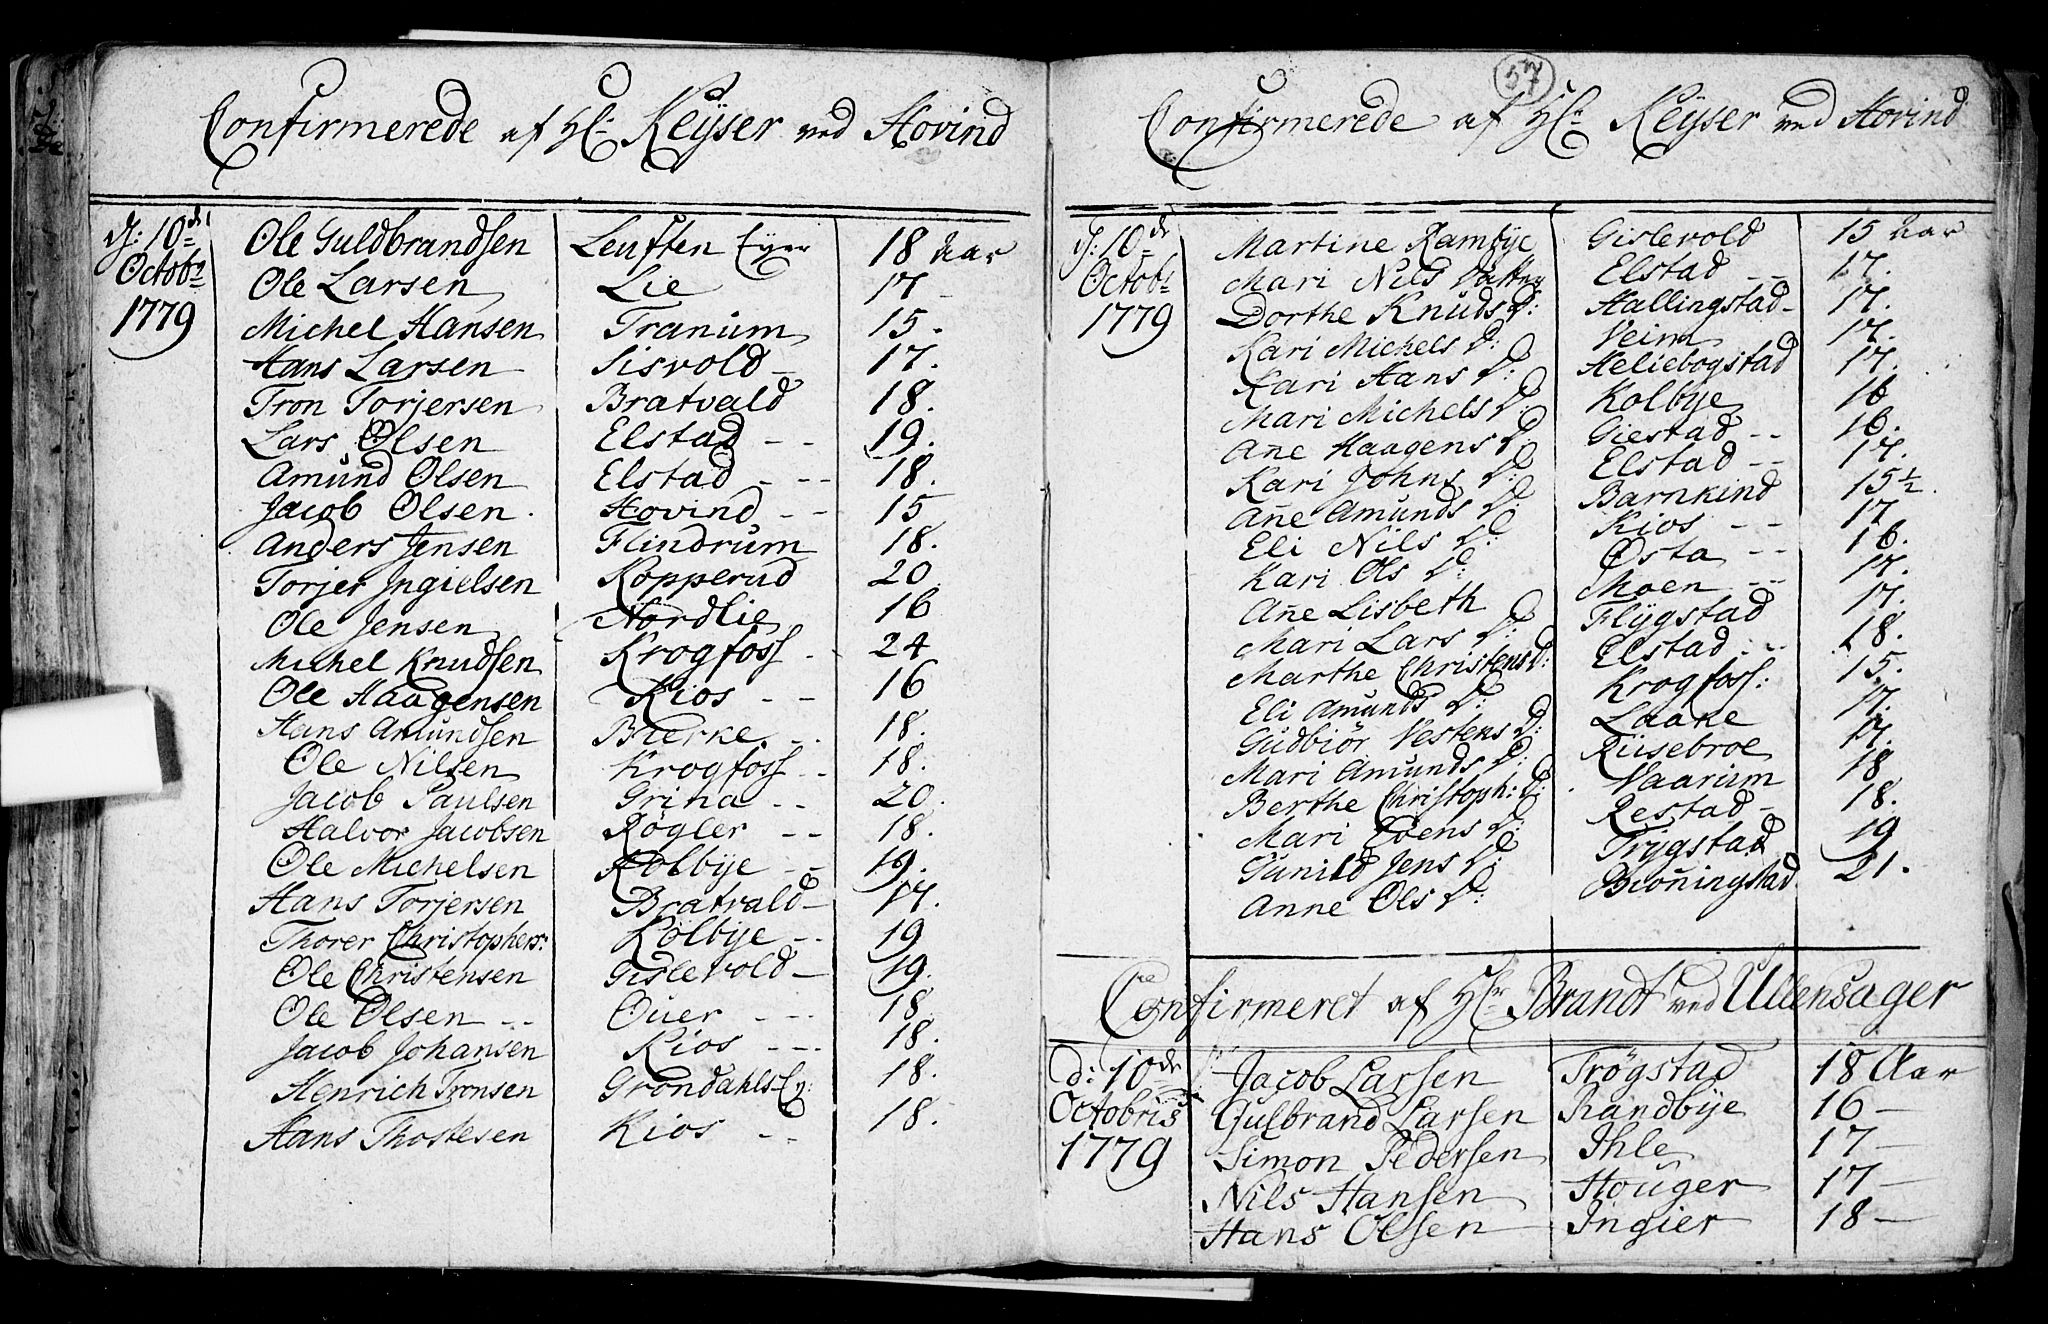 Confirmerede af Hr. Keyser ved Hovind
d: 10de Octobr 1779
Ole Guldbrandsen Leuften Eyer 18 Aar
Ole Larsen Lie 17
Michel Hansen Tranum 15.
Hans Larsen Sisvold 17.
Tron Torjersen Bratvald 18.
Lars Olsen Elstad -- 19.
Amund Olsen Elstad -- 18.
Jacob Olsen. Hovind -- 15
Anders Jensen Flindrum 18.
Torjer Ingielsen Kopperud 20
Ole Jensen Nordlie 16
Michel Knudsen Krogfoss 24
Ole Haagensen Kios -- 16
Hans Amundsen Bierke. 18.
Ole Nilsen Krogfoss -- 18.
Jacob Paulsen Grina -- 20.
Halvor Jacobsen Røgler -- 18.
Ole Michelsen Kolbye -- 19.
Hans Torjersen Bratvald 17.
Thorer Christophers: Kolbye -- 19
Ole Christensen Gislevold 19.
Ole Olsen -- Ouer --- 18.
Jacob Johansen Kios --- 18.
Henrich Tronsen Grøndahls Ey: 18.
Hans Thostesen Kios -- 18.
57
Confirmerede af Hr. Keyser ved Hovind
d: 10de Octobr 1779
Martine Rambye Gislevold 15 Aar
Mari Nils Datter Elstad -- 17.
Dorthe Knuds D: Hallingstad 17.
Kari Michels D: Veim 17.
Kari Hans D: Heliebogstad 17.
Mari Michels D: Kolbye 16
Añe Haagens D: Giestad -- 16.
Kari Johns D: Elstad -- 17.
Añe Amunds D: Barnkind 15½.
Eli Nils D: Kios -- 17
Kari Ols D: Østa -- 16.
Añe Lisbeth Moen -- 17.
Mari Lars D: Flygstad 17.
Marthe Christens D: Elstad -- 18.
Eli Amunds D: Krogfoss: 15.
Gudbiør Vestens D: Laake 17.
Mari Amunds D: Riisebroe 17.
Berthe Christoph: D: Vaarum 18
Mari Edens D: Restad 18.
Gunild Jens D: Trygstad 19
Anne Ols D: Bioñingstad. 21.
Confirmeret af Hr Brandt ved Ullensager
d: 10de Octobris 1779
Jacob Larsen Trøgstad 18 Aar
Gulbrand Larsen Randbye 16
Simon Pedersen Ihle 17
Nils Hansen Houger 17
Hans Olsen Ingier 18